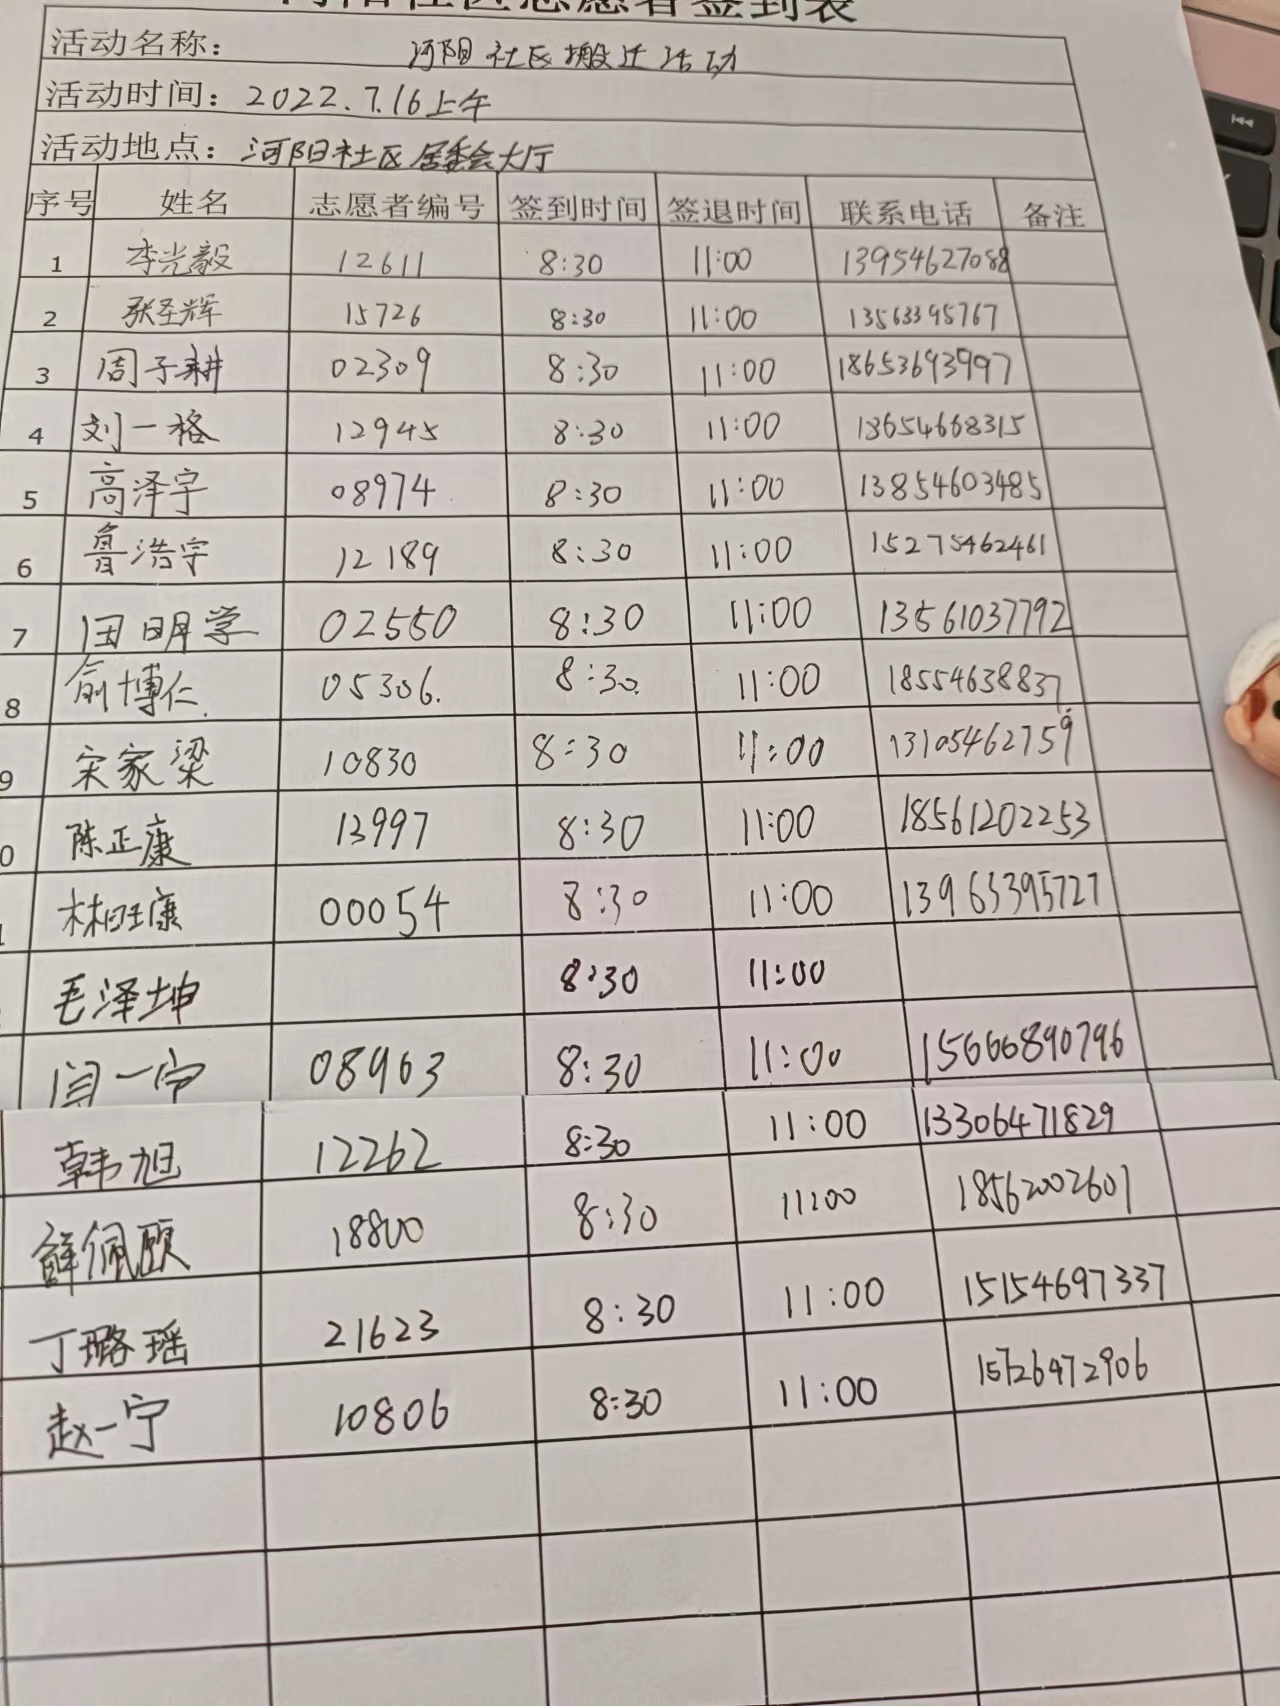 河阳社区志愿者签到表
活动名称： 河阳社区搬迁活动
活动时间：2022.7.16上午
活动地点：河阳社区居委会大厅
序号 姓名 志愿者编号 签到时间 签退时间 联系电话 备注
1 李光毅 12611 8:30 11:00 13954627088
2 张圣辉 15726 8:30 11:00 13563395767
3 周子耕 02309 8:30 11:00 18653693997
4 刘一格 12945 8:30 11:00 13654668315
5 高泽宇 08974 8:30 11:00 13854603485
6 鲁浩宇 12189 8:30 11:00 15275462461
7 田明学 02550 8:30 11:00 13561037792
8 俞博仁 05306. 8:30 11:00 18554638837
9 宋家梁 10830 8:30 11:00 13105462759
0 陈正康 13997 8:30 11:00 18561202253
林旺康 00054 8:30 11:00 13963395727
毛泽坤 8:30 11:00
闫一宁 08963 8:30 11:00 15666890796
韩旭 12262 8:30 11:00 13306471829
薛佩颐 18800 8:30 11:00 18562002601
丁璐瑶 21623 8:30 11:00 15154697337
赵一宁 10806 8:30 11:00 15726472906